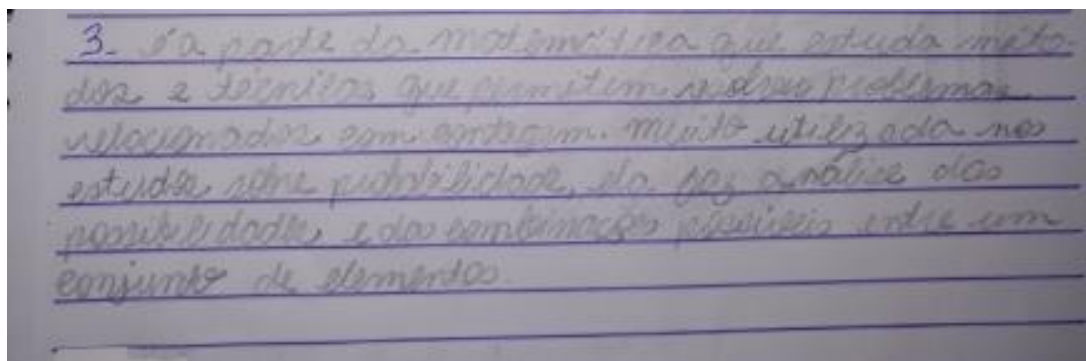 3. é a parte da matemática que estuda méto
dos e técnicas que permitem resolver problemas
relacionados com contagem. Muito utilizada nos
estudos sobre probabilidade, ela faz análise das
possibilidades e das combinações possíveis entre um
conjunto de elementos.